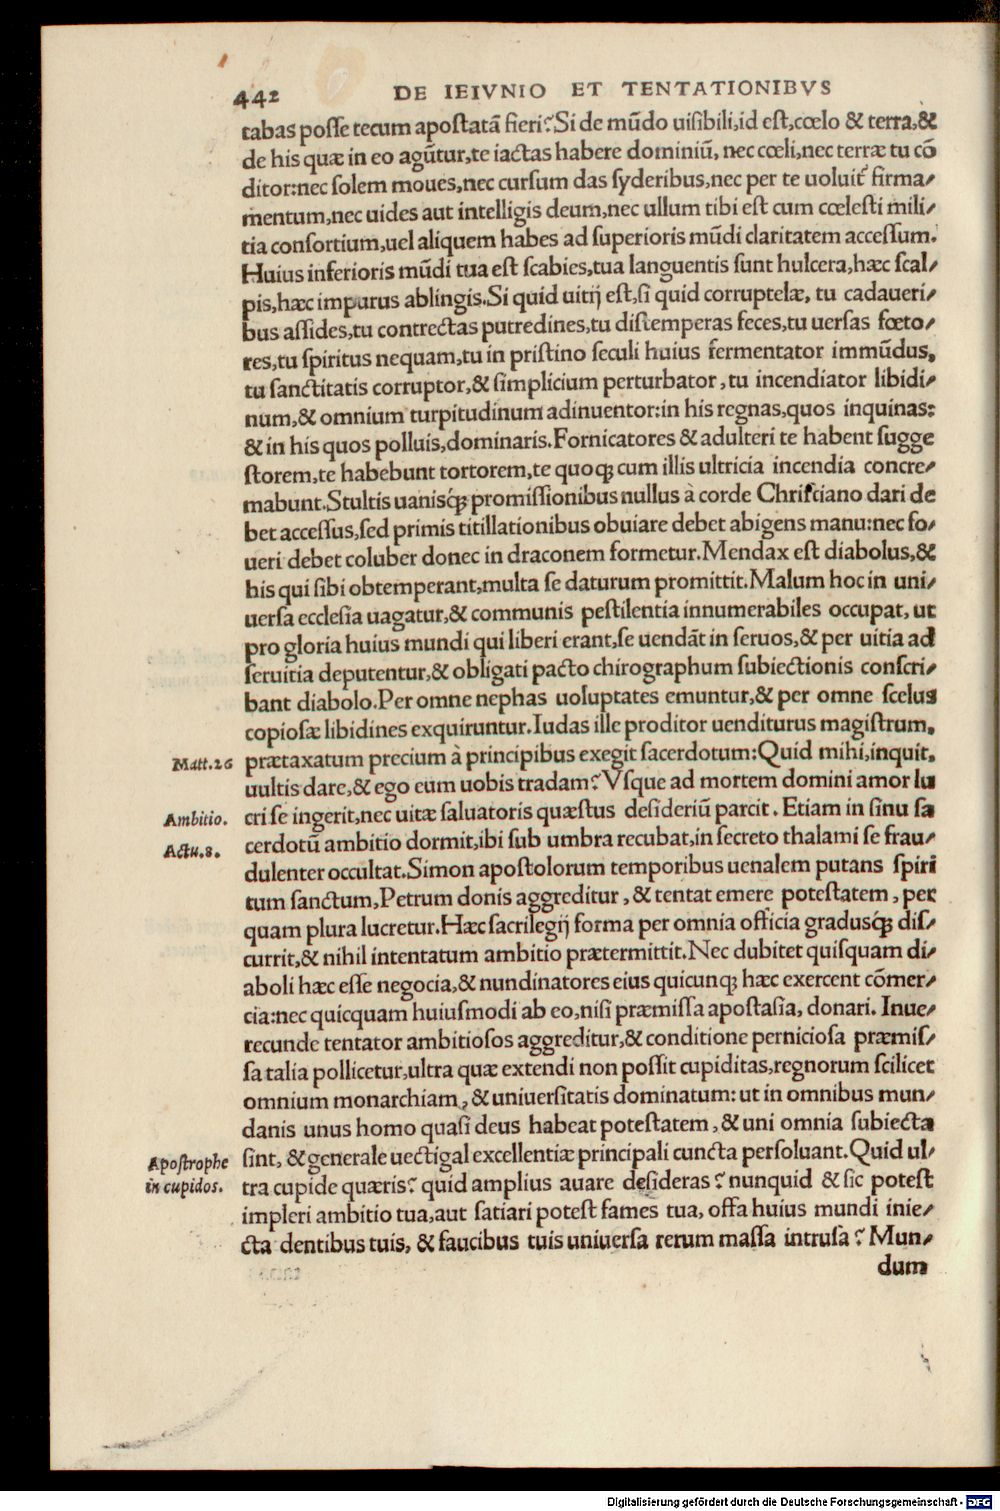 442 DE IEIVNIO ET TENTATIONIBVS
tabas posse tecum apostatã fieri? Si de mũdo uisibili, id est, cœlo & terra, &
de his quæ in eo agũtur, te iactas habere dominiũ, nec cœli, nec terræ tu cõ
ditor: nec solem moues, nec cursum das syderibus, nec per te uoluit᷑ firma/
mentum, nec uides aut intelligis deum, nec ullum tibi est cum cœlesti mili/
tia consortium, uel aliquem habes ad superioris mũdi claritatem accessum.
Huius inferioris mũdi tua est scabies, tua languentis sunt hulcera, hæc scal/
pis, hæc impurus ablingis. Si quid uitij est, si quid corruptelæ, tu cadaueri/
bus assides, tu contrectas putredines, tu distemperas feces, tu uersas fœto/
res, tu spiritus nequam, tu in pristino seculi huius fermentator immũdus,
tu sanctitatis corruptor, & simplicium perturbator, tu incendiator libidi/
num, & omnium turpitudinum adinuentor: in his regnas, quos inquinas:
& in his quos polluis, dominaris. Fornicatores & adulteri te habent sugge
storem, te habebunt tortorem, te quoqꝫ cum illis ultricia incendia concre/
mabunt. Stultis uanisq́ꝫ promissionibus nullus à corde Christiano dari de
bet accessus, sed primis titillationibus obuiare debet abigens manu: nec fo/
ueri debet coluber donec in draconem formetur. Mendax est diabolus, &
his qui sibi obtemperant, multa se daturum promittit. Malum hoc in uni/
uersa ecclesia uagatur, & communis pestilentia innumerabiles occupat, ut
pro gloria huius mundi qui liberi erant, se uendãt in seruos, & per uitia ad
seruitia deputentur, & obligati pacto chirographum subiectionis conscri/
bant diabolo. Per omne nephas uoluptates emuntur, & per omne scelus
copiosæ libidines exquiruntur. Iudas ille proditor uenditurus magistrum,
Matt.26 prætaxatum precium à principibus exegit sacerdotum: Quid mihi, inquit,
uultis dare, & ego eum uobis tradam? Vsque ad mortem domini amor lu
Ambitio. cri se ingerit, nec uitæ saluatoris quæstus desideriũ parcit. Etiam in sinu sa
Actu.8. cerdotũ ambitio dormit, ibi sub umbra recubat, in secreto thalami se frau/
dulenter occultat. Simon apostolorum temporibus uenalem putans spiri
tum sanctum, Petrum donis aggreditur, & tentat emere potestatem, per
quam plura lucretur. Hæc sacrilegij forma per omnia officia gradusq́ꝫ dis/
currit, & nihil intentatum ambitio prætermittit. Nec dubitet quisquam di/
aboli hæc esse negocia, & nundinatores eius quicunqꝫ hæc exercent cõmer/
cia: nec quicquam huiusmodi ab eo, nisi præmissa apostasia, donari. Inue/
recunde tentator ambitiosos aggreditur, & conditione perniciosa præmis/
sa talia pollicetur, ultra quæ extendi non possit cupiditas, regnorum scilicet
omnium monarchiam, & uniuersitatis dominatum: ut in omnibus mun/
danis unus homo quasi deus habeat potestatem, & uni omnia subiecta
Apostrophe sint, & generale uectigal excellentiæ principali cuncta persoluant. Quid ul/
in cupidos. tra cupide quæris? quid amplius auare desideras? nunquid & sic potest
impleri ambitio tua, aut satiari potest fames tua, offa huius mundi inie/
cta dentibus tuis, & faucibus tuis uniuersa rerum massa intrusa? Mun/
dum
Digitalisierung gefördert durch die Deutsche Forschungsgemeinschaft - DFG